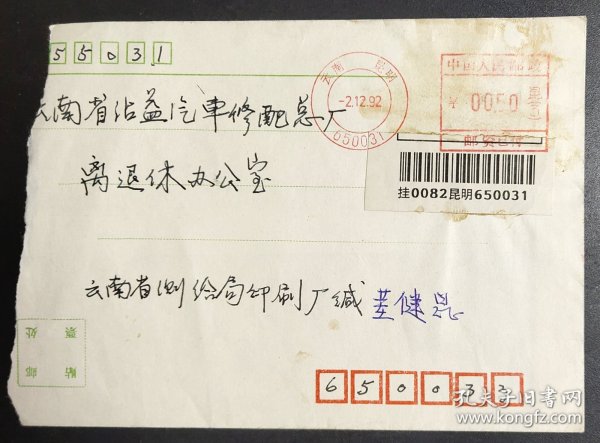 55031
云南 昆明
-2.12.92
650031
中国人民邮政
¥ 0050
邮资已付
云南省沾益汽車修配总厂
挂0082昆明650031
离退休办公室
云南省测绘局印刷厂缄 姜健昆
贴邮票处
650033
孔夫子旧书网
www.kongfz.com